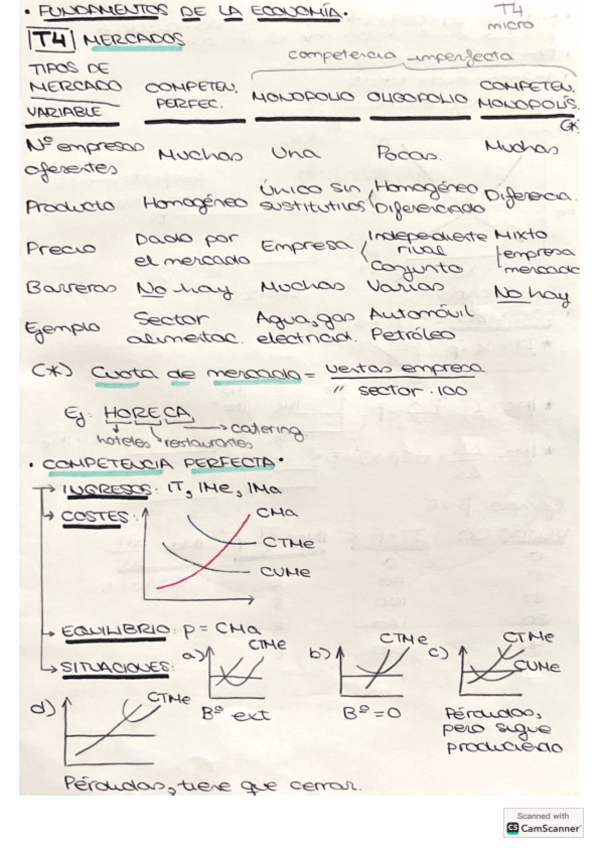 · FUNDAMENTOS DE LA ECONOMÍA ·
T4
micro
T4 MERCADOS
competencia imperfecta
TIPOS DE MERCADO
VARIABLE
COMPETEN. PERFEC.
MONOPOLIO
OLIGOPOLIO
COMPETEN. MONOPOLÍS.
(*)
Nº empresas oferentes
Muchas
Una
Pocas.
Muchas
Producto
Homogéneo
Único sin sustitutivos
Homogéneo
Diferenciado
Diferencia.
Precio
Dado por el mercado
Empresa
Independiente rival
Conjunto
Mixto
empresa
mercado
Barreras
No hay
Muchas
Varias
No hay
Ejemplo
Sector alimentac.
Agua, gas electricid.
Automóvil
Petróleo
(*) Cuota de mercado = ventas empresa
" sector · 100
Ej: HORECA,
hoteles
restaurantes
catering
· COMPETENCIA PERFECTA ·
INGRESOS: IT, IMe, IMa
COSTES:
CMa
CTMe
CVMe
EQUILIBRIO: p = CMa
SITUACIONES:
a)
CTMe
Bº ext
b)
CTMe
Bº = 0
c)
CTMe
CVMe
Pérdidas, pero sigue produciendo
d)
CTMe
Pérdidas, tiene que cerrar.
Scanned with
CS CamScanner